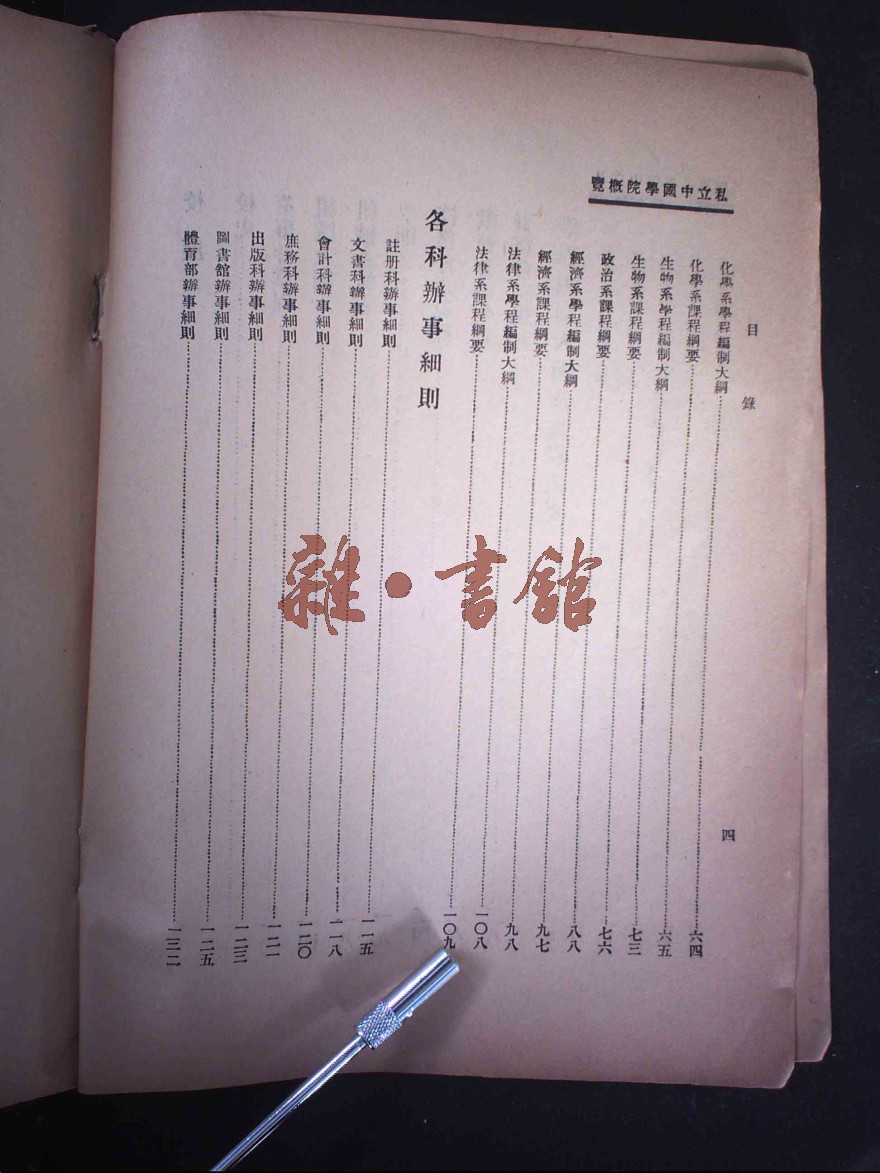 私立中國學院概覽
目錄 四
化學系學程編制大綱……六四
化學系課程綱要……六五
生物系學程編制大綱……七三
生物系課程綱要……七六
政治系課程綱要……八八
經濟系學程編制大綱……九七
經濟系課程綱要……九八
法律系學程編制大綱……一〇八
法律系課程綱要……一〇九
各科辦事細則
註册科辦事細則……一一五
文書科辦事細則……一一八
會計科辦事細則……一二〇
庶務科辦事細則……一二一
出版科辦事細則……一二三
圖書館辦事細則……一二五
體育部辦事細則……一三二
雜·書館